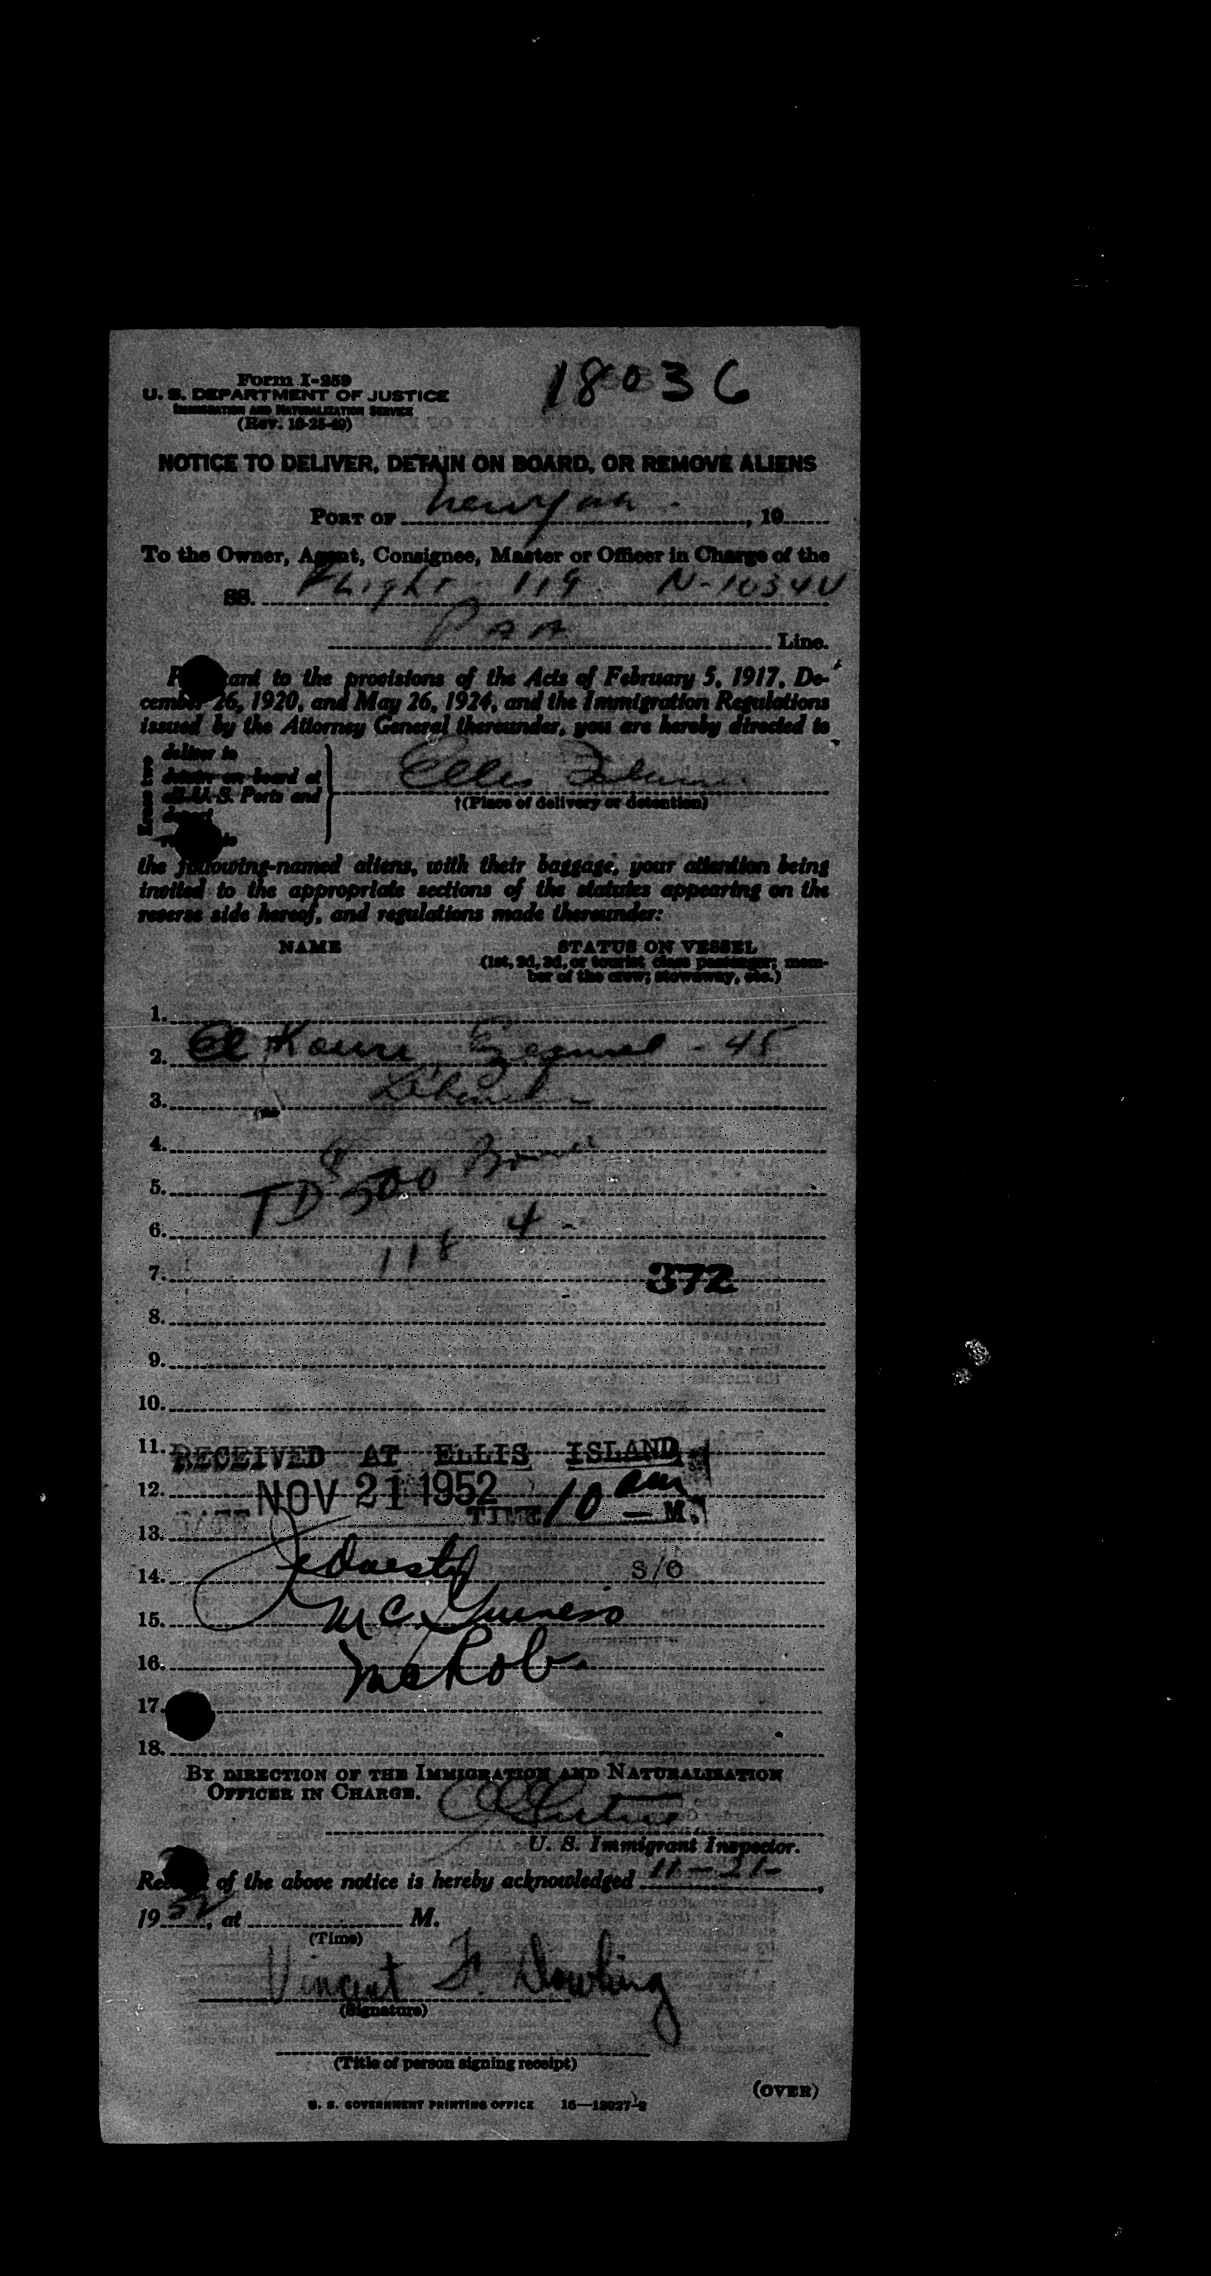 18036
Form I-259
U. S. DEPARTMENT OF JUSTICE
IMMIGRATION AND NATURALIZATION SERVICE
(Rev. 10-25-49)
NOTICE TO DELIVER, DETAIN ON BOARD, OR REMOVE ALIENS
PORT OF New York , 19
To the Owner, Agent, Consignee, Master or Officer in Charge of the
SS. Flight 119 N-1034V
PAA Line.
Pursuant to the provisions of the Acts of February 5, 1917, De-
cember 26, 1920, and May 26, 1924, and the Immigration Regulations
issued by the Attorney General thereunder, you are hereby directed to
deliver to
detain on board at
all U. S. Ports and
deport
Ellis Island
†(Place of delivery or detention)
the following-named aliens, with their baggage, your attention being
invited to the appropriate sections of the statutes appearing on the
reverse side hereof, and regulations made thereunder:
NAME STATUS ON VESSEL
(1st, 2d, 3d, or tourist class passenger; mem-
ber of the crew; stowaway, etc.)
1.
2. El Kouri, Ezequiel - 45
3.
4.
5. TD 500
6. 4 -
7. 118 372
8.
9.
10.
11. RECEIVED AT ELLIS ISLAND
12. DATE NOV 21 1952 TIME 10 am M.
13.
14. S/O
15. McGuiness
16.
17.
18.
BY DIRECTION OF THE IMMIGRATION AND NATURALIZATION
OFFICER IN CHARGE.
U. S. Immigrant Inspector.
Receipt of the above notice is hereby acknowledged 11-21-,
1952, at M.
(Time)
Vincent F. Dowling
(Signature)
(Title of person signing receipt)
(OVER)
U. S. GOVERNMENT PRINTING OFFICE 16—13027-2